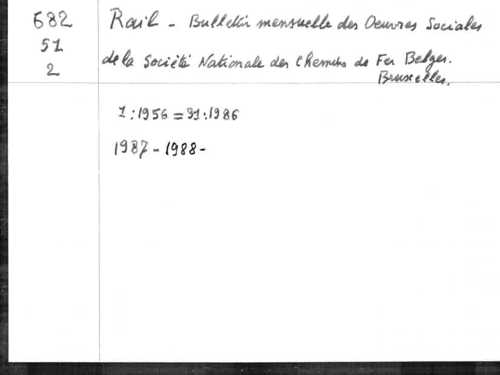 682
51
2
Rail - Bulletin mensuelle des Oeuvres Sociales
de la Société Nationale des Chemins de Fer Belges.
Bruxelles.
1:1956 = 31:1986
1987 - 1988 -